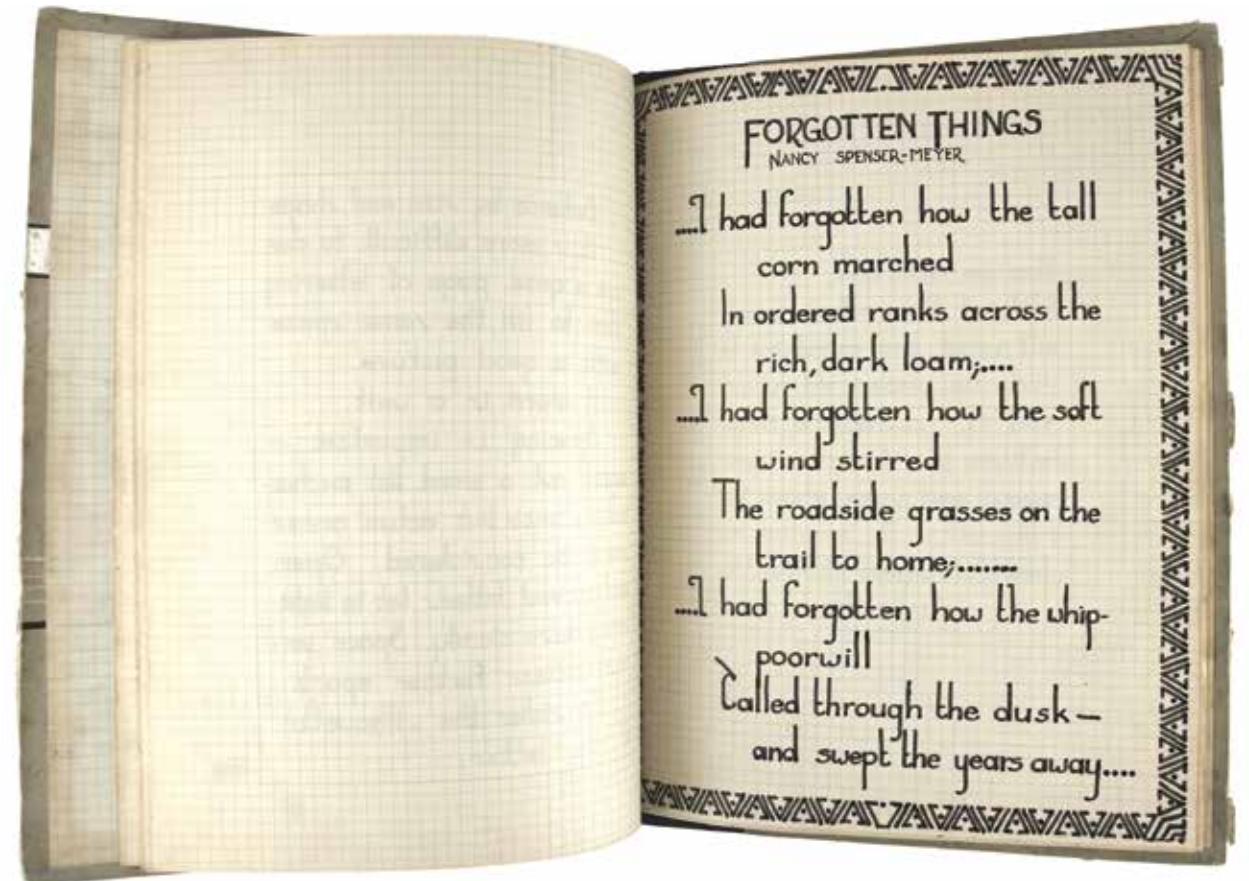 FORGOTTEN THINGS
NANCY SPENSER-MEYER
....I had forgotten how the tall
corn marched
In ordered ranks across the
rich, dark loam;....
....I had forgotten how the soft
wind stirred
The roadside grasses on the
trail to home;.......
....I had forgotten how the whip-
poorwill
Called through the dusk —
and swept the years away....